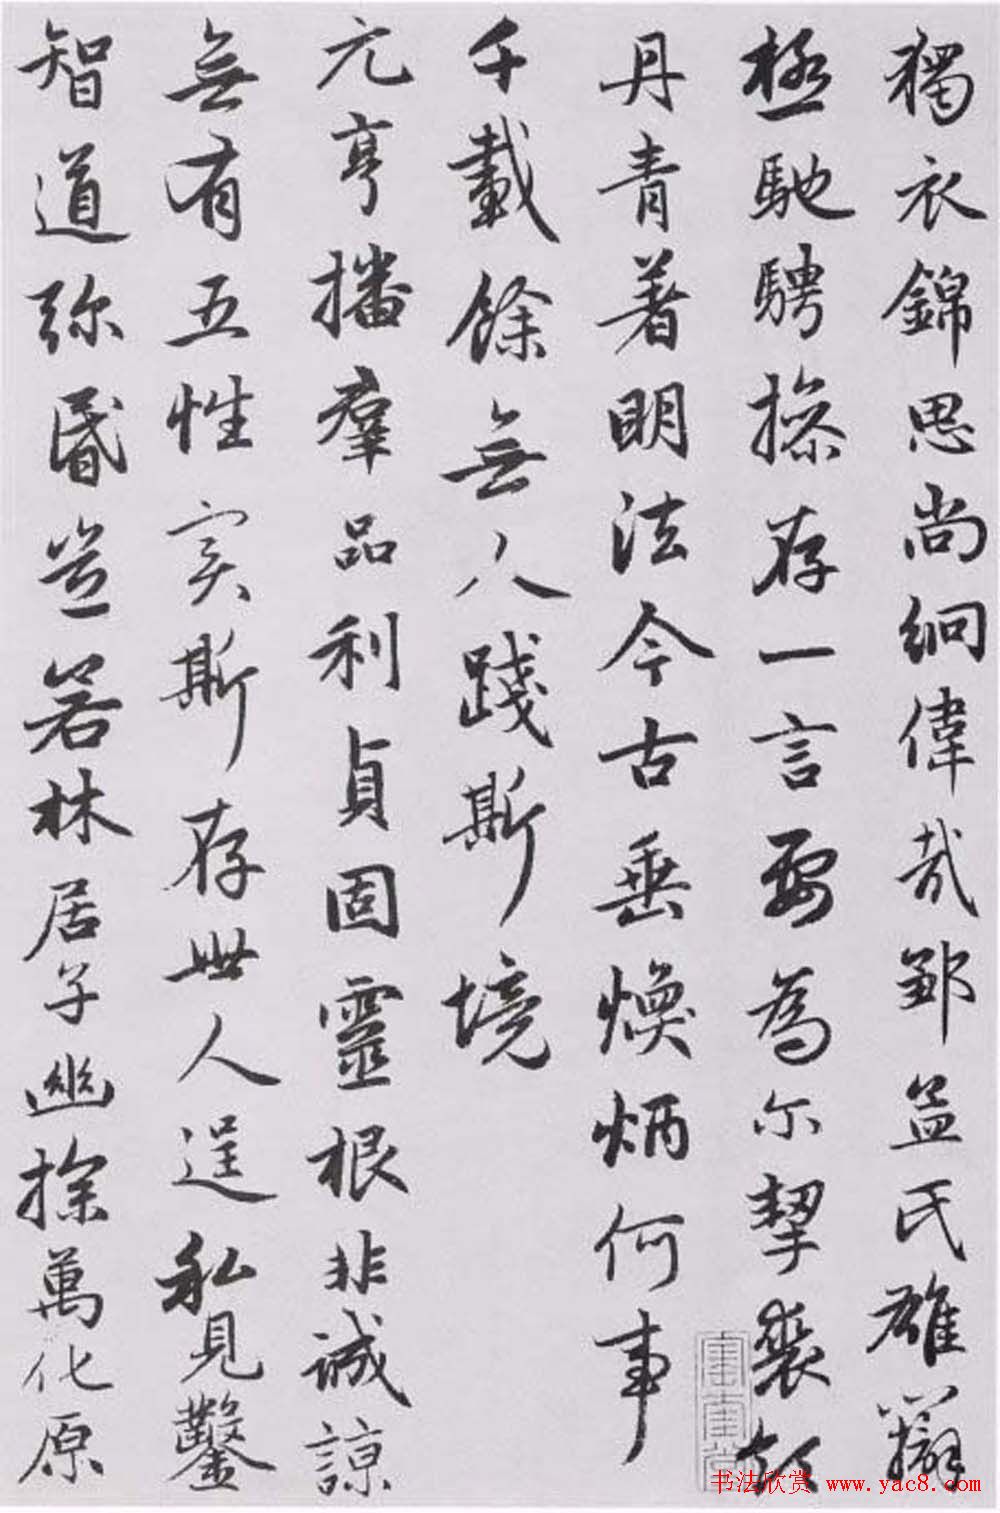 獨衣錦思尚絅偉哉鄒孟氏雄辯
極馳騁操存一言要為尓挈裘領
丹青著明法今古垂煥炳何事
千載餘無人踐斯境
元亨播羣品利貞固靈根非誠諒
無有五性実斯存世人逞私見鑿
智道弥昬豈若林居子幽探萬化原
书法欣赏 www.yac8.com